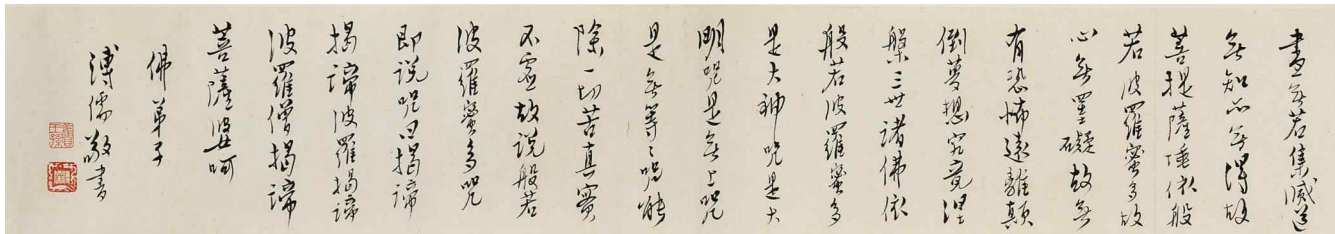 盡無苦集滅道
無知亦無得故
菩提薩埵依般
若波羅蜜多故
心無罣礙故無
有恐怖遠離顛
倒夢想究竟涅
槃三世諸佛依
般若波羅蜜多
是大神咒是大
明咒是無上咒
是無等々咒能
除一切苦真實
不虛故說般若
波羅蜜多咒
即說咒曰揭諦
揭諦波羅揭諦
波羅僧揭諦
菩薩婆呵
佛弟子
溥儒敬書
舊王孫